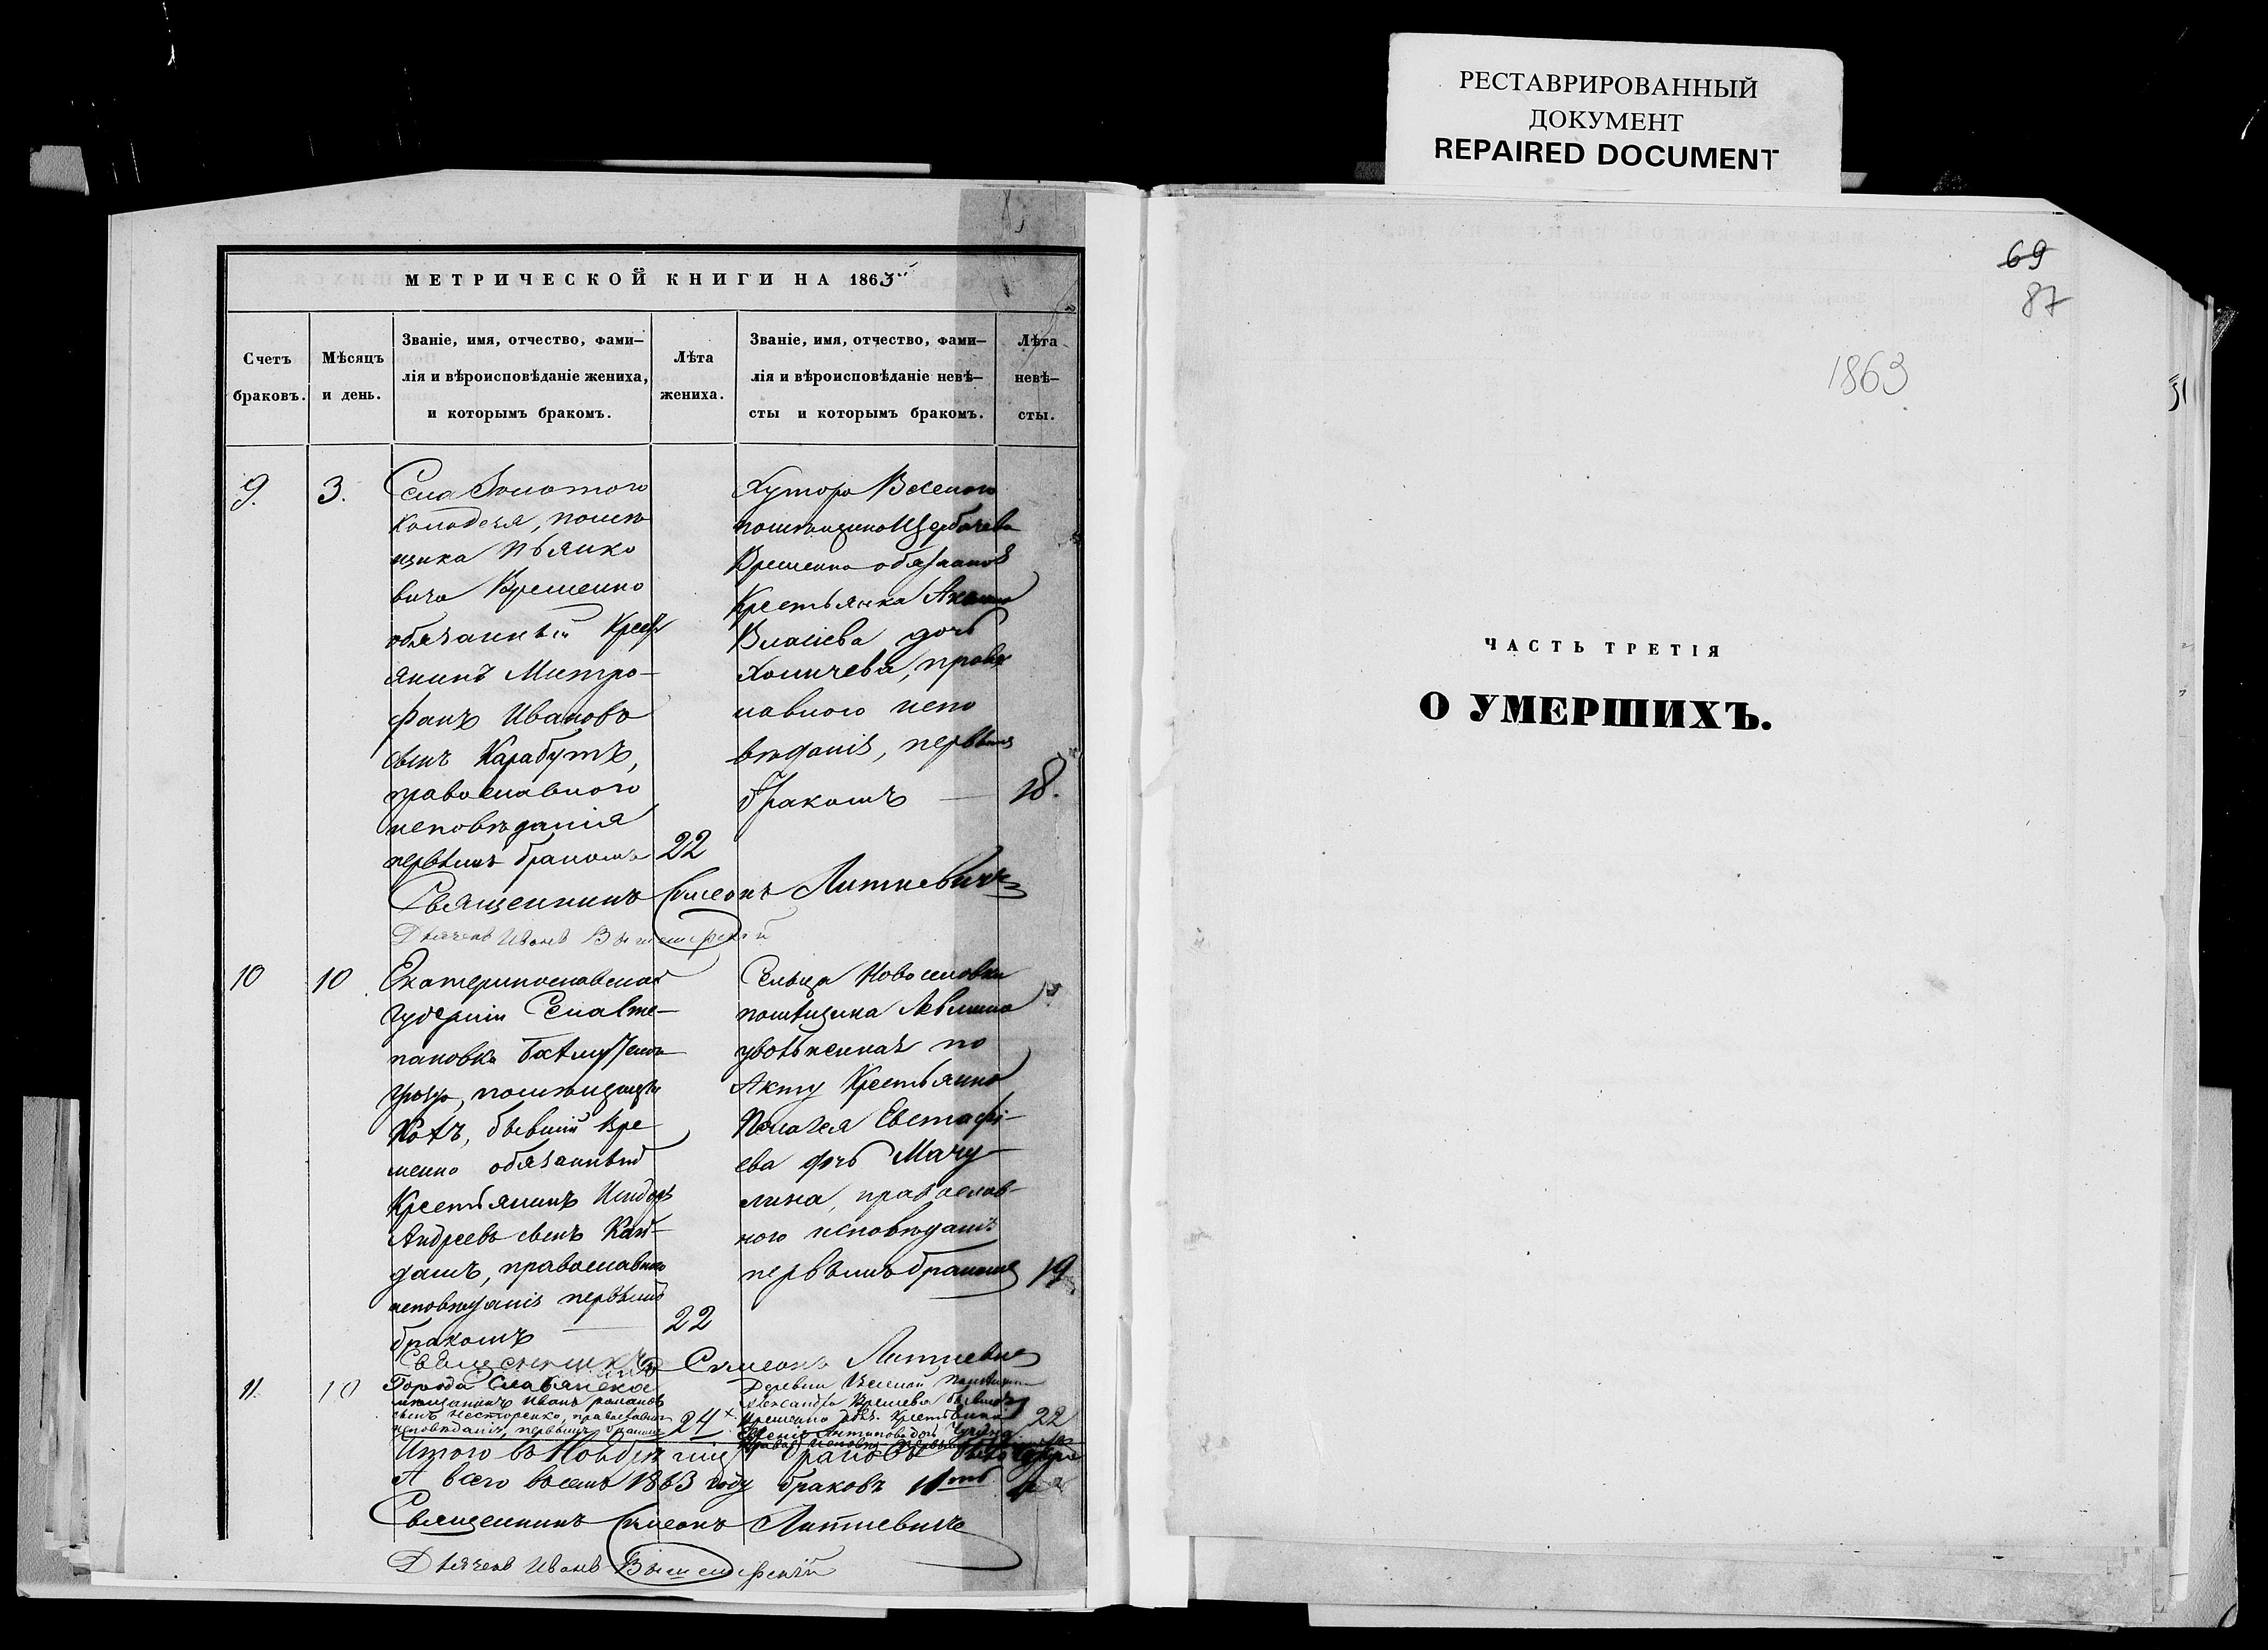 РЕСТАВРИРОВАННЫЙ
ДОКУМЕНТ
REPAIRED DOCUMENT
МЕТРИЧЕСКОЙ КНИГИ НА 1863й
Счетъ браковъ.
Мѣсяцъ и день.
Званіе, имя, отчество, фами-
лія и вѣроисповѣданіе жениха,
и которымъ бракомъ.
Лѣта жениха.
Званіе, имя, отчество, фами-
лія и вѣроисповѣданіе невѣ-
сты и которымъ бракомъ.
Лѣта невѣ-
сты.
9.
3.
Села Золотого
Колодезя, помѣ
щика Пѣянко
вича Временно
обязанный Кресть
янинъ Митро-
фанъ Ивановъ
сынъ Карабутъ,
православного
исповѣданія
первымъ бракомъ
22
Хутора
помѣщика Щербачева
Временно обязанная
Крестьянка
Власіева дочь
Хомичева, право
славного испо
вѣданія, первымъ
бракомъ
18.
Священникъ Симеонъ Литкевичъ
Дьячекъ Иванъ
10
10
Екатеринославской
Губерніи
пановки Бахмутскаго
уѣзда, помѣщицы
бывшій Вре
менно обязанный
Крестьянинъ Исидоръ
Андреевъ сынъ Кан-
дашъ, православнаго
исповѣданія первымъ
бракомъ
22
Сельца Новоселовки
помѣщика
уволѣнная по
Акту Крестьянка
Пелагея Евстафі-
ева дочь Мачу-
лина, православ-
ного исповѣданія
первымъ бракомъ
19
Священникъ Симеонъ Литкевичъ
11.
10
Города Славянска
мѣщанинъ Иванъ Романовъ
сынъ Несторенко, православнаго
исповѣданія, первымъ бракомъ
24
Деревни
Александра
Временно обяз. Крестьянка
22
Итого въ Ноябрѣ браковъ было
А всего въ семъ 1863 году браковъ 11ть
Священникъ Симеонъ Литкевичъ
Дьячекъ Иванъ
69
87
1863
ЧАСТЬ ТРЕТІЯ
О УМЕРШИХЪ.